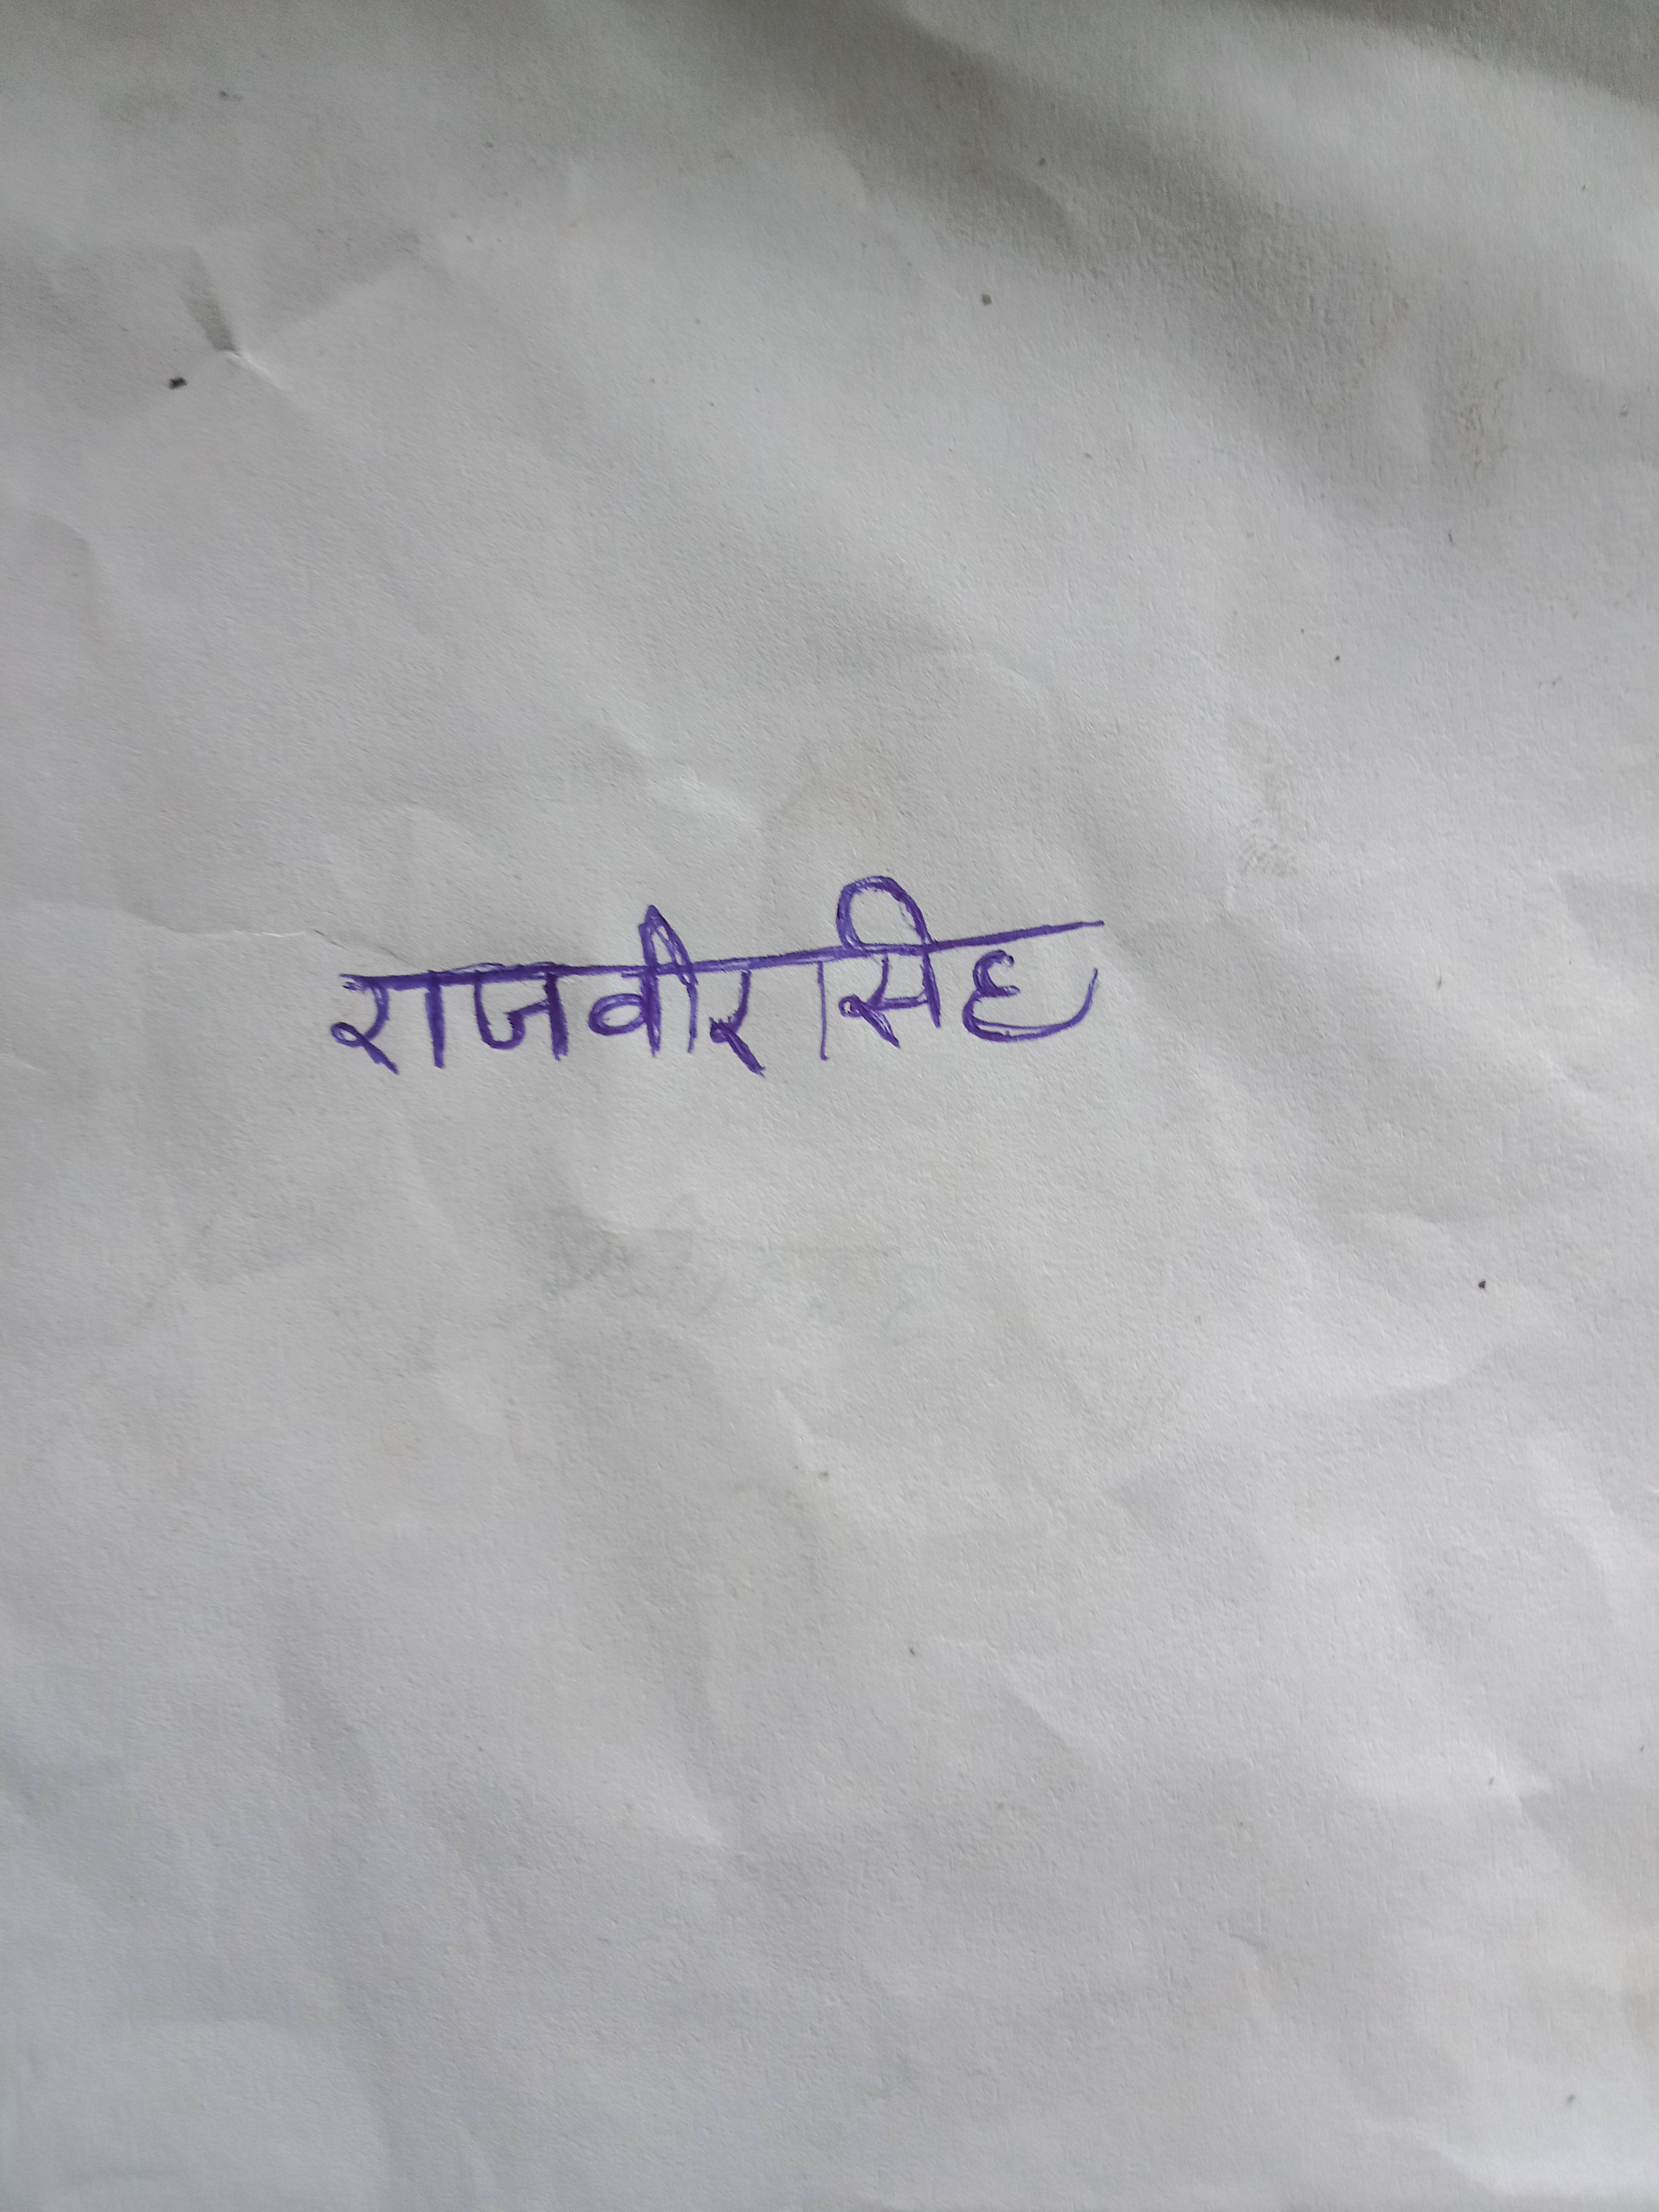 राजवीरासिह